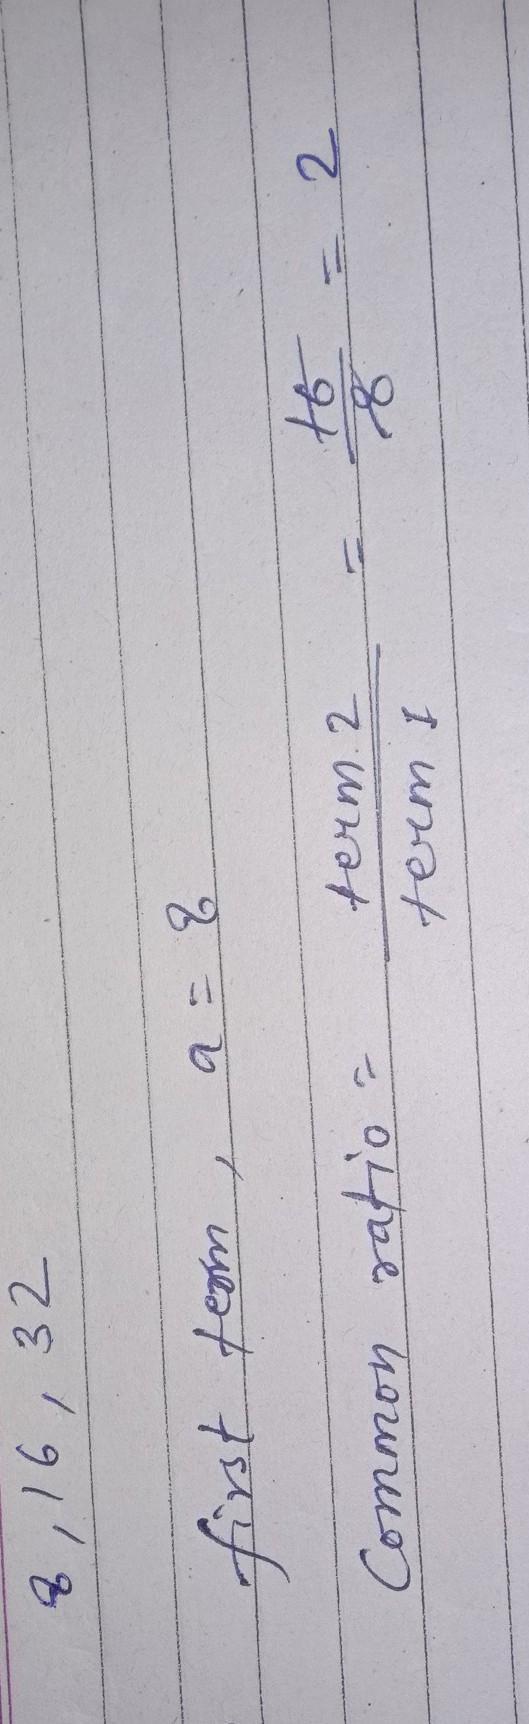 8, 16, 32
first term, a = 8
Common ratio = term 2 / term 1 = 16 / 8 = 2